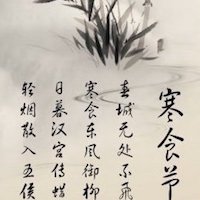 寒食节
春城无处不飞
寒食东风御柳
日暮汉宫传蜡
轻烟散入五侯